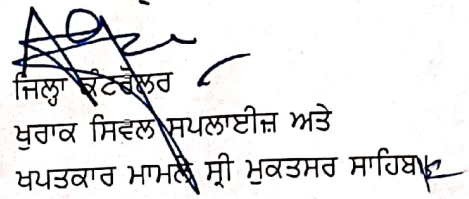 ਜਿਲ੍ਹਾ ਕੰਟਰੋਲਰ
ਖੁਰਾਕ ਸਿਵਲ ਸਪਲਾਈਜ਼ ਅਤੇ
ਖਪਤਕਾਰ ਮਾਮਲੇ ਸ੍ਰੀ ਮੁਕਤਸਰ ਸਾਹਿਬ